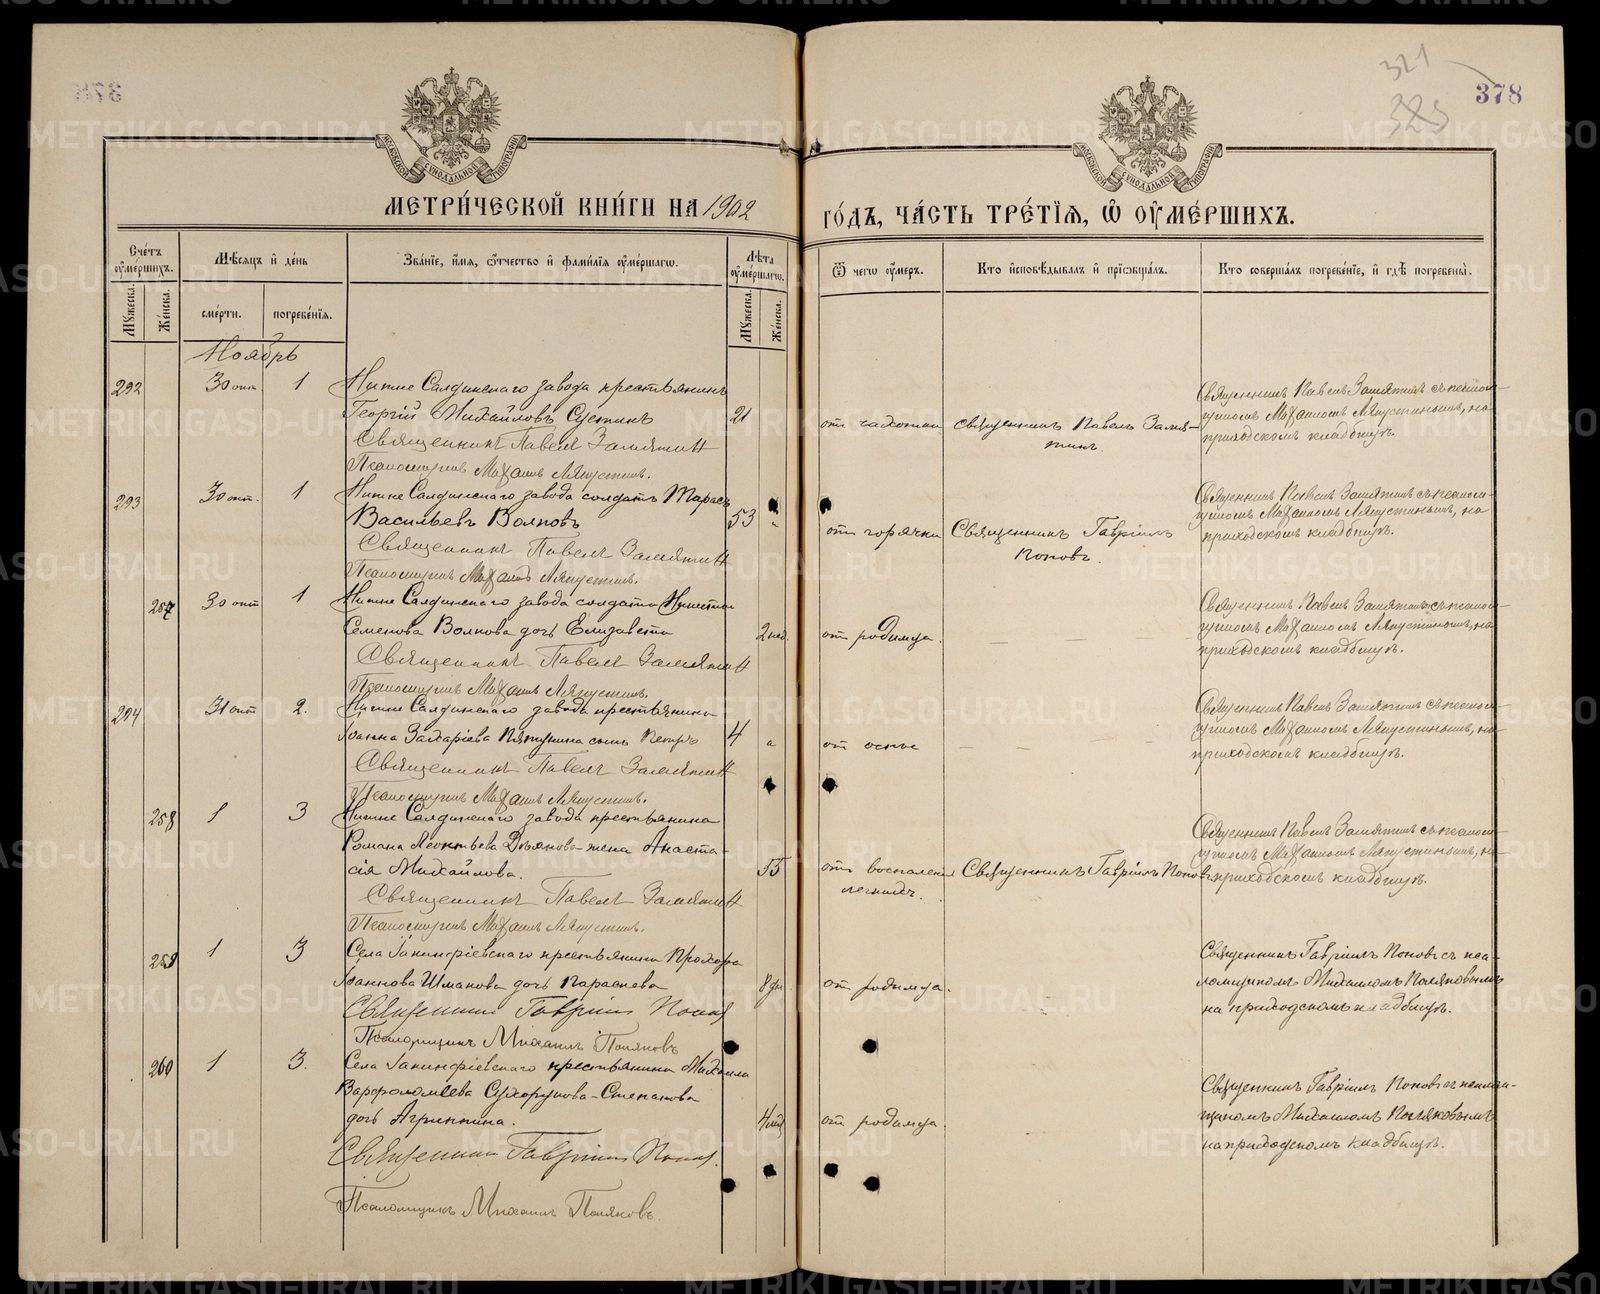 321
325
378
МОСКОВСКОЙ СѴНОДАЛЬНОЙ ТИПОГРАФІИ
МОСКОВСКОЙ СѴНОДАЛЬНОЙ ТИПОГРАФІИ
МЕТРИ́ЧЕСКОЙ КНИ́ГИ НА 1902
ГО́ДЪ, ЧА́СТЬ ТРЕ́ТІѦ, Ѿ ОУМЕ́РШИХЪ.
Сче́тъ оумершихъ.
Мѣсяцъ и день
Званіе, имя, отчество и фамилія оумершагѡ.
Лѣта оумершагѡ.
Ѿ чегѡ оумеръ.
Кто исповѣдывалъ и пріобщалъ.
Кто совершалъ погребеніе, и гдѣ погребены.
Мужеска.
Женска.
смерти.
погребенія.
Мужеска.
Женска.
Ноябрь
292 30 окт. 1 Нижне Салдинскаго завода крестьянинъ
Георгій Михайловъ 21
от чахотки священникъ Павелъ Замятинъ.
Священникъ Павелъ Замятинъ съ псаломщикомъ Михаиломъ Ляпустинымъ, на приходскомъ кладбищѣ.
Священникъ Павелъ Замятин
Псаломщикъ Михаилъ Ляпустинъ.
293 30 окт. 1 Нижне Салдинскаго завода солдатъ Тарасъ
Васильевъ Волковъ 53
от горячки Священникъ Гавріилъ Поповъ.
Священникъ Павелъ Замятинъ съ псаломщикомъ Михаиломъ Ляпустинымъ, на приходскомъ кладбищѣ.
Священник Павелъ Замятин
Псаломщикъ Михаилъ Ляпустинъ.
257 30 окт 1 Нижне Салдинскаго завода солдата
Семенова Волкова дочь Елизавета 2 нед.
от родимца.
Священникъ Павелъ Замятинъ съ псаломщикомъ Михаиломъ Ляпустинымъ, на приходскомъ кладбищѣ.
Священникъ Павелъ Замятин
Псаломщикъ Михаилъ Ляпустинъ.
294 31 окт 2. Нижне Салдинскаго завода крестьянина
Іоанна Захаріева сынъ Петръ 4
от оспы
Священникъ Павелъ Замятинъ съ псаломщикомъ Михаиломъ Ляпустинымъ, на приходскомъ кладбищѣ.
Священникъ Павелъ Замятин
Псаломщикъ Михаилъ Ляпустинъ.
258 1 3 Нижне Салдинскаго завода крестьянина
Романа Леонтьева жена Анаста-
сія Михайлова. 55
отъ воспаленія легкихъ. Священникъ Гавріилъ Поповъ
Священникъ Павелъ Замятинъ съ псаломщикомъ Михаиломъ Ляпустинымъ, на приходскомъ кладбищѣ.
Священникъ Павелъ Замятин
Псаломщикъ Михаилъ Ляпустинъ.
259 1 3 Села Іакинфіевскаго крестьянина Прохора
Іоаннова Шмакова дочь Параскева 8 дн.
от родимца.
Священникъ Гавріилъ Поповъ съ псаломщикомъ Михаиломъ Поляковымъ на приходскомъ кладбищѣ.
Священникъ Гавріилъ Попов
Псаломщикъ Михаилъ Поляковъ
260 1 3. Села Іакинфіевскаго крестьянина Михаила
Варфоломѣева Сухорукова-Степанова
дочь Агриппина. 4 мѣс
от родимца.
Священникъ Гавріилъ Поповъ съ псаломщикомъ Михаиломъ Поляковымъ на приходскомъ кладбищѣ.
Священникъ Гавріилъ Попов.
Псаломщикъ Михаилъ Поляковъ.
METRIKI.GASO-URAL.RU